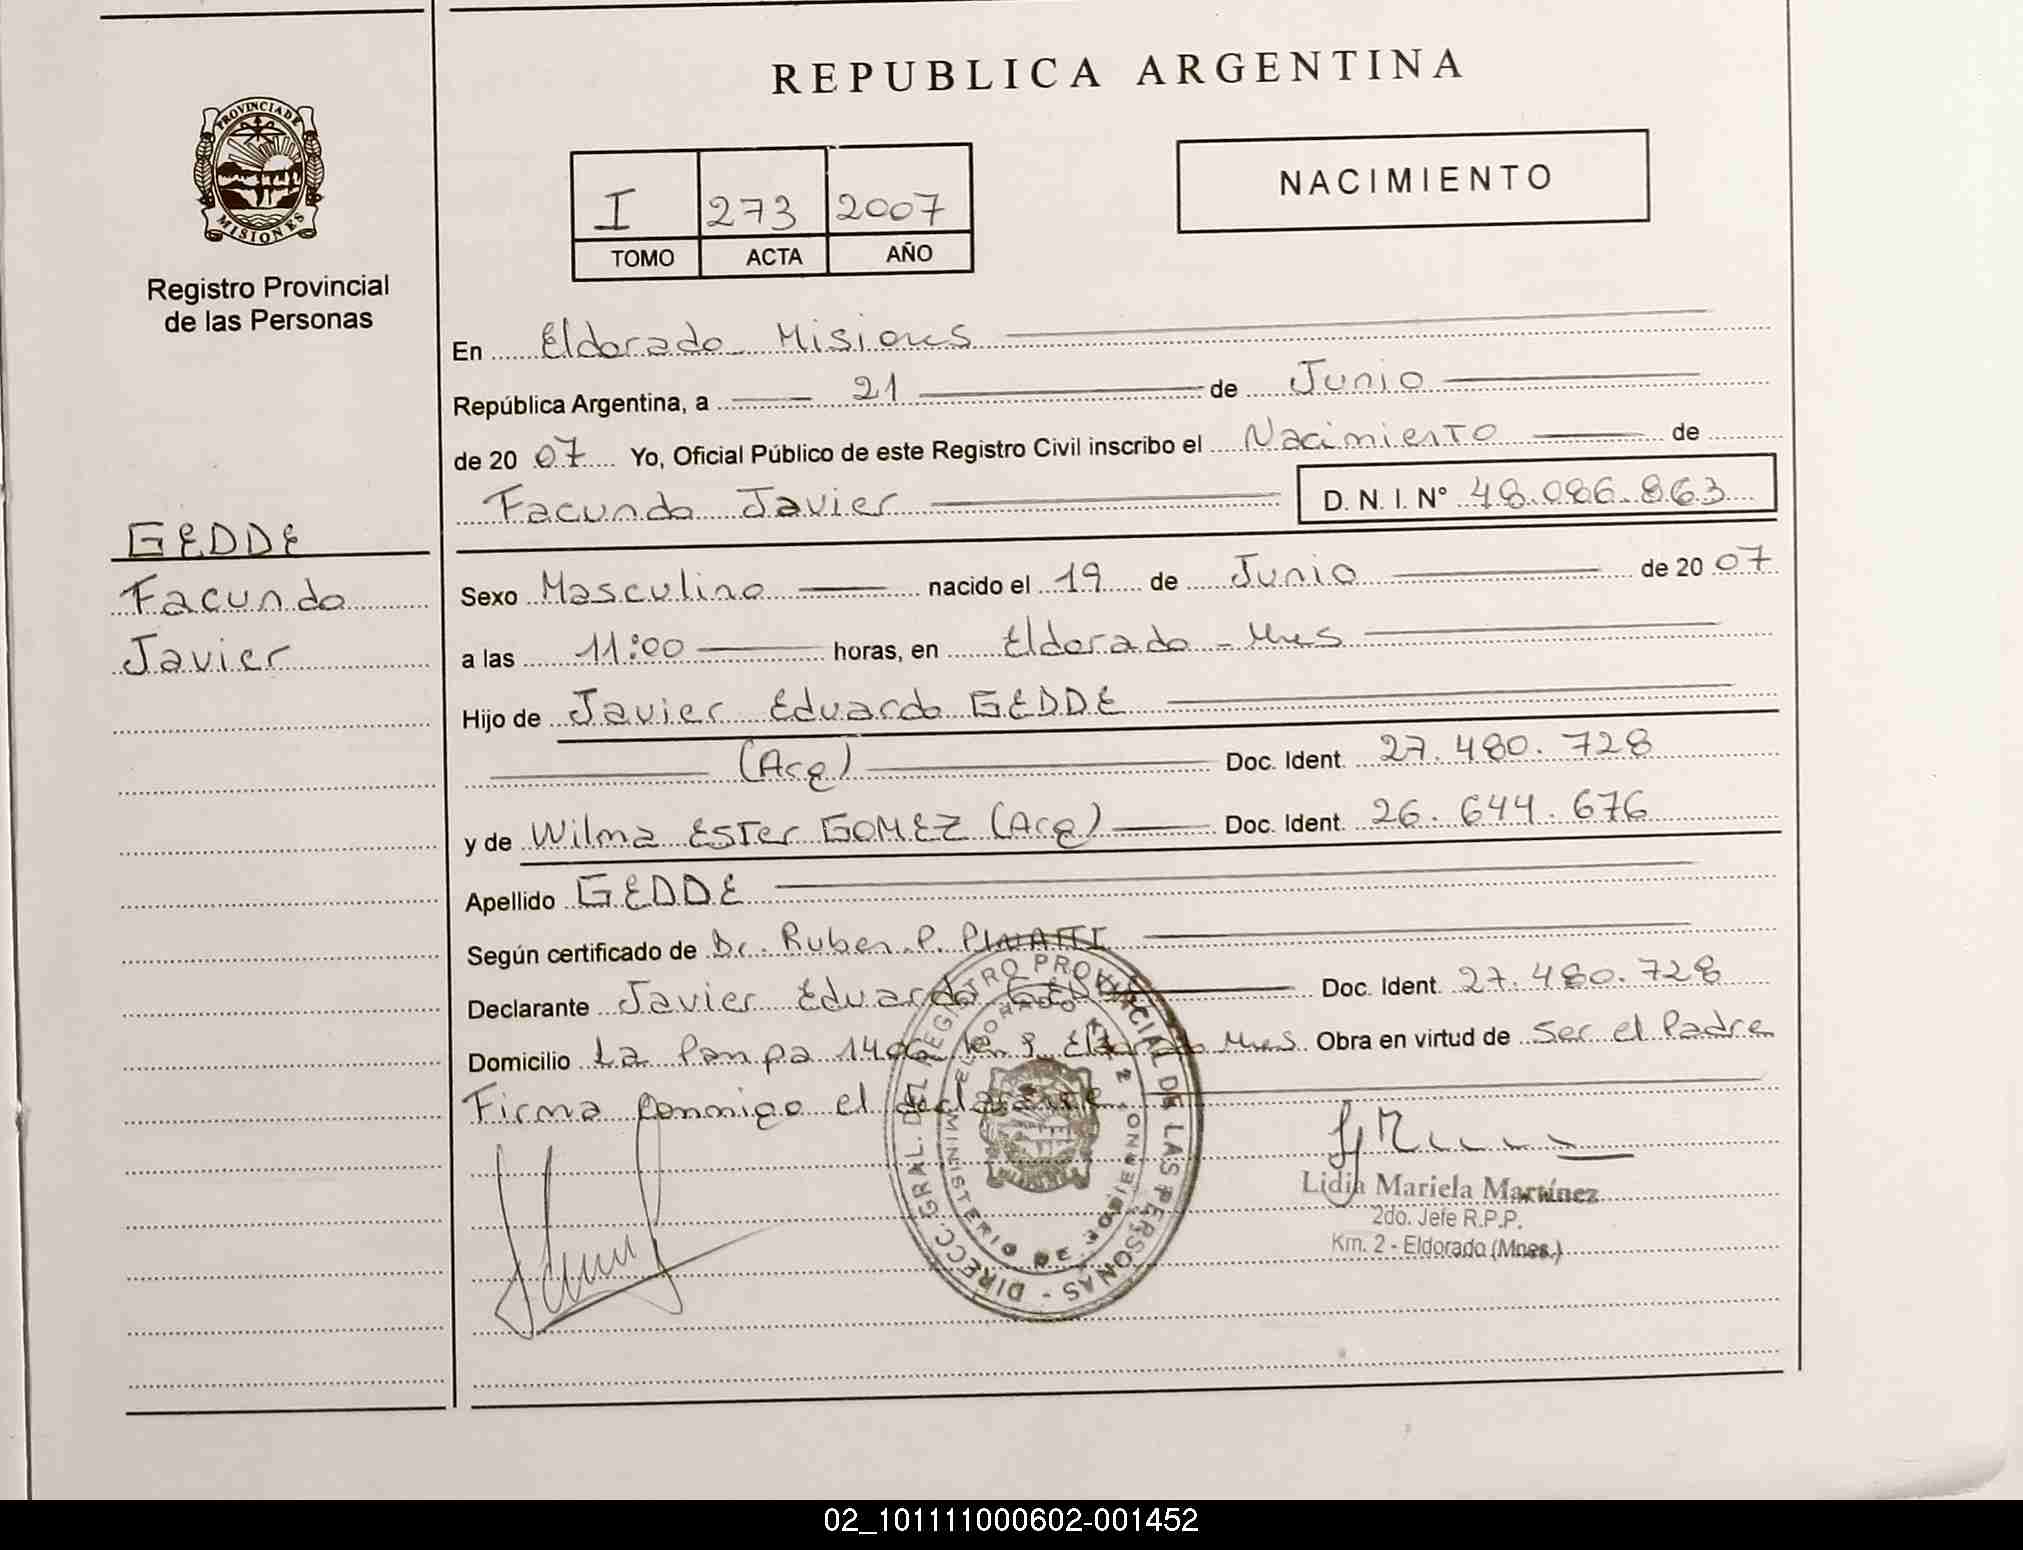 REPUBLICA ARGENTINA
PROVINCIA DE MISIONES
Registro Provincial
de las Personas
I 273 2007
TOMO ACTA AÑO
NACIMIENTO
En Eldorado Misiones
República Argentina, a 21 de Junio
de 20 07 Yo, Oficial Público de este Registro Civil inscribo el Nacimiento de
Facundo Javier D. N. I. N° 48.086.863
GEDDE
Facundo
Javier
Sexo Masculino nacido el 19 de Junio de 20 07
a las 11:00 horas, en Eldorado - Mnes
Hijo de Javier Eduardo GEDDE
(Arg) Doc. Ident. 27.480.728
y de Wilma Ester GOMEZ (Arg) Doc. Ident. 26.644.676
Apellido GEDDE
Según certificado de Dr. Ruben P.
Declarante Javier Eduardo GEDDE Doc. Ident. 27.480.728
Domicilio La Pampa Km 9 Eldorado Mnes Obra en virtud de Ser el Padre
Firma conmigo el declarante
DIRECC. GRAL. DEL REGISTRO PROVINCIAL DE LAS PERSONAS -
MINISTERIO DE GOBIERNO
ELDORADO KM 2
Lidia Mariela Martínez
2do. Jefe R.P.P.
Km. 2 - Eldorado (Mnes.)
02_101111000602-001452